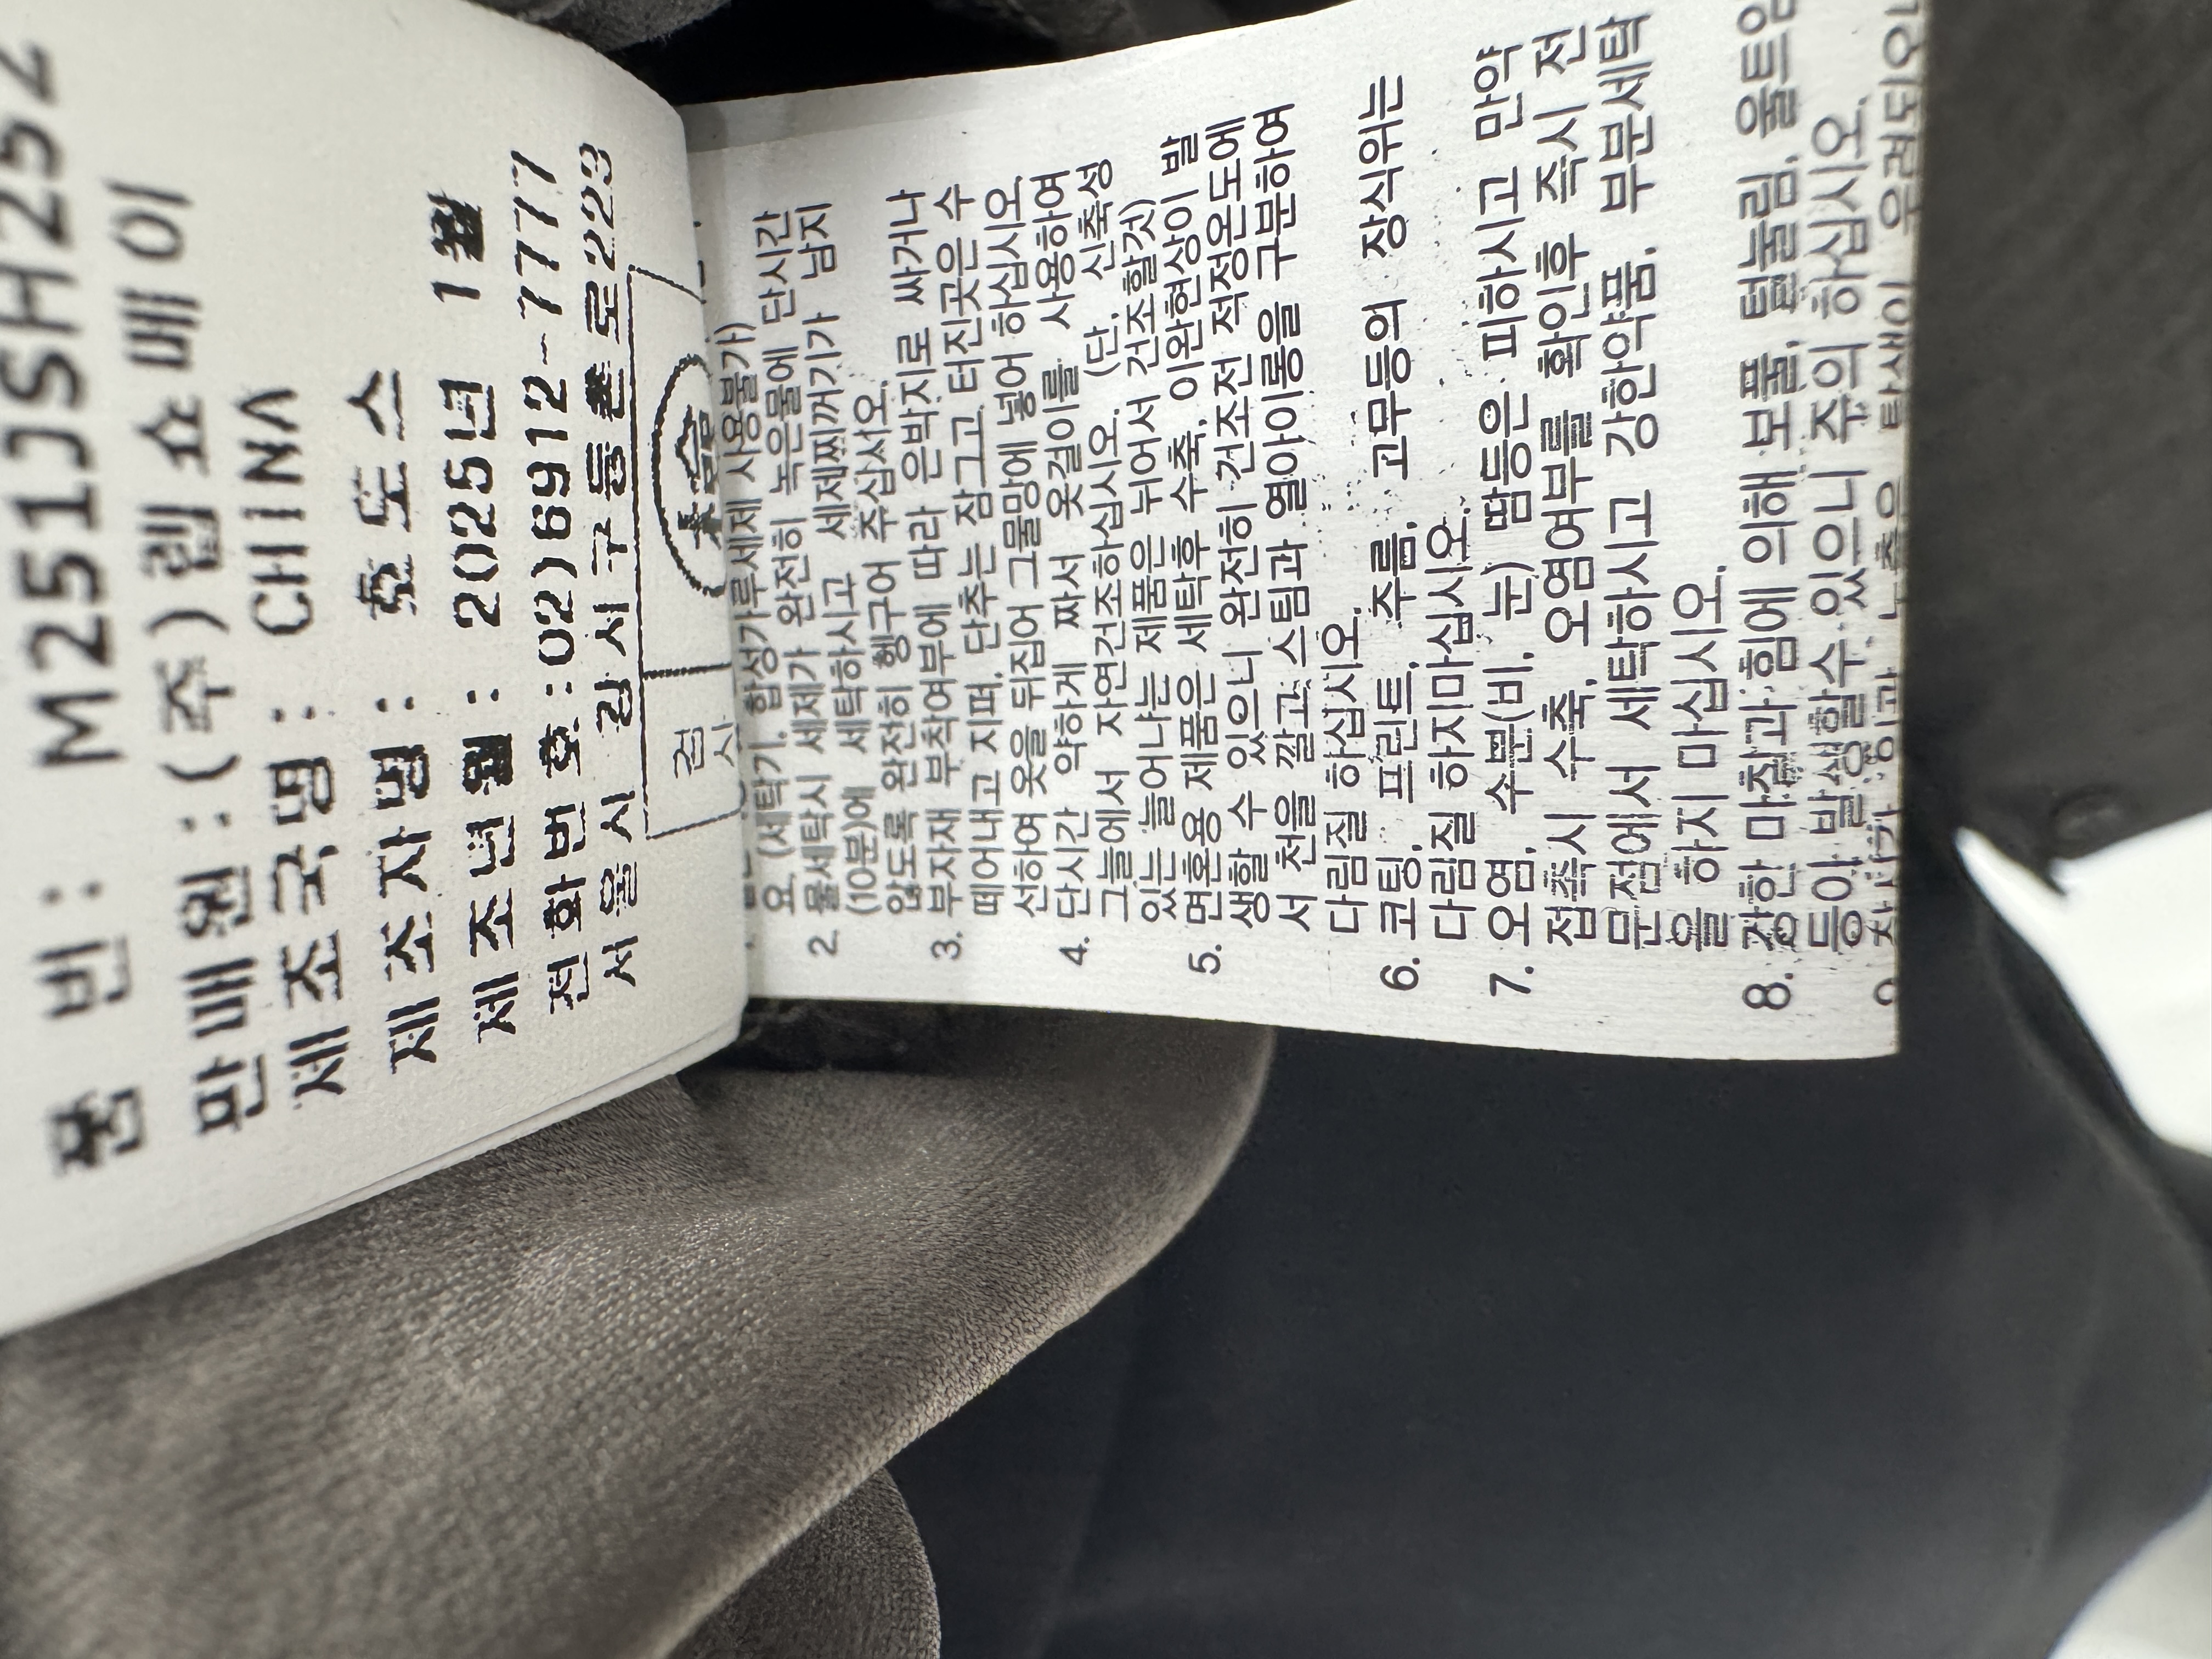 품 번 : M251JSH252
판매원 : (주)랩쇼메이
제조국명 : CHINA
제조자명 : 효도스
제조년월 : 2025년 1월
전화번호 : 02)6912-7777
서울시 강서구 등촌로223
검
사
요. (세탁기, 합성가루세제 사용불가)
2. 물세탁시 세제가 완전히 녹은물에 단시간
(10분)에 세탁하시고 세제찌꺼기가 남지
않도록 완전히 헹구어 주십시오.
3. 부자재 부착여부에 따라 은박지로 싸거나
떼어내고 지퍼, 단추는 잠그고 터진곳은 수
선하여 옷을 뒤집어 그물망에 넣어 하십시오.
4. 단시간 약하게 짜서 옷걸이를 사용하여
그늘에서 자연건조하십시오. (단, 신축성
있는 늘어나는 제품은 뉘어서 건조할것)
5. 면혼용 제품은 세탁후 수축, 이완현상이 발
생할 수 있으니 완전히 건조전 적정온도에
서 천을 깔고 스팀과 열아이롱을 구분하여
다림질 하십시오.
6. 코팅, 프린트, 주름, 고무등의 장식위는
다림질 하지마십시오.
7. 오염, 수분(비, 눈) 땀등은 피하시고 만약
접촉시 수축, 오염여부를 확인후 즉시 전
문점에서 세탁하시고 강한약품, 부분세탁
을 하지 마십시오.
8. 강한 마찰과 힘에 의해 보풀, 털눌림, 올트임
등이 발생할수 있으니 주의 하십시오.